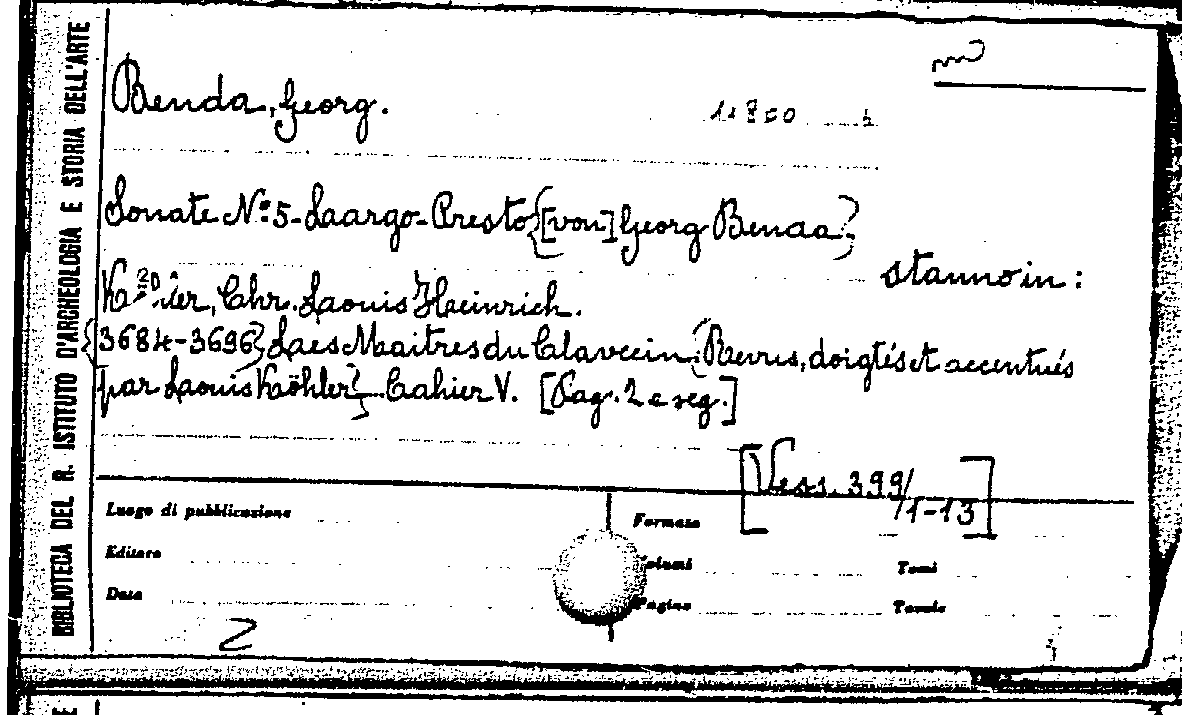 BIBLIOTECA DEL R. ISTITUTO D'ARCHEOLOGIA E STORIA DELL'ARTE
Benda, Georg.
Sonate Nº 5 - Laargo - Presto {[von] Georg Benda}
stanno in:
Chr. Laouis Heinrich.
{3684-3696} Laes Maitres du Clavecin {Revus, doigtés et accentués
par Laouis Köhler} - Cahier V. [Pag. 2 e seg.]
[Vess. 399/
1-13]
Luogo di pubblicazione
Formato
Editore
Volumi
Tomi
Data
Pagine
Tavole
2